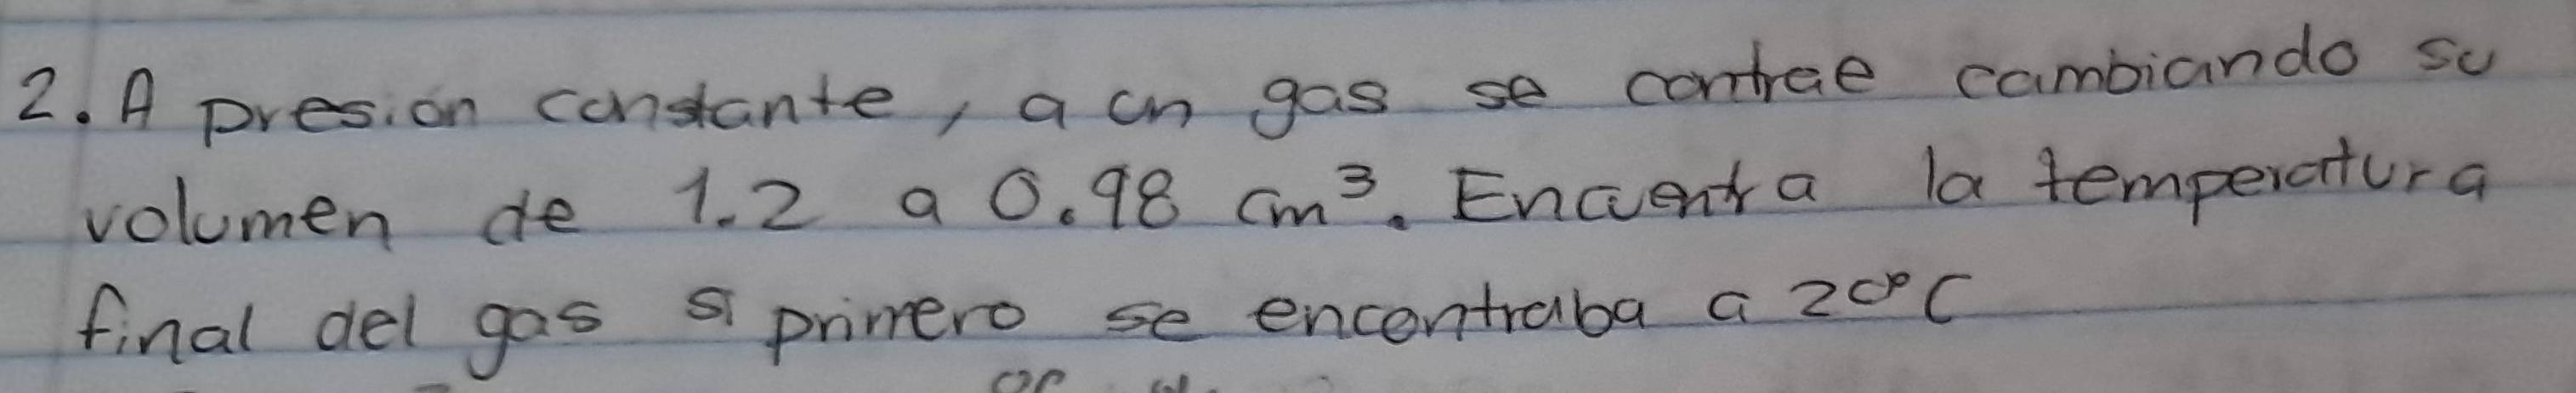 2. A presión constante, a un gas se contrae cambiando su
volumen de 1.2 a 0.98 cm³. Encuentra la temperatura
final del gas si primero se encontraba a 20°C